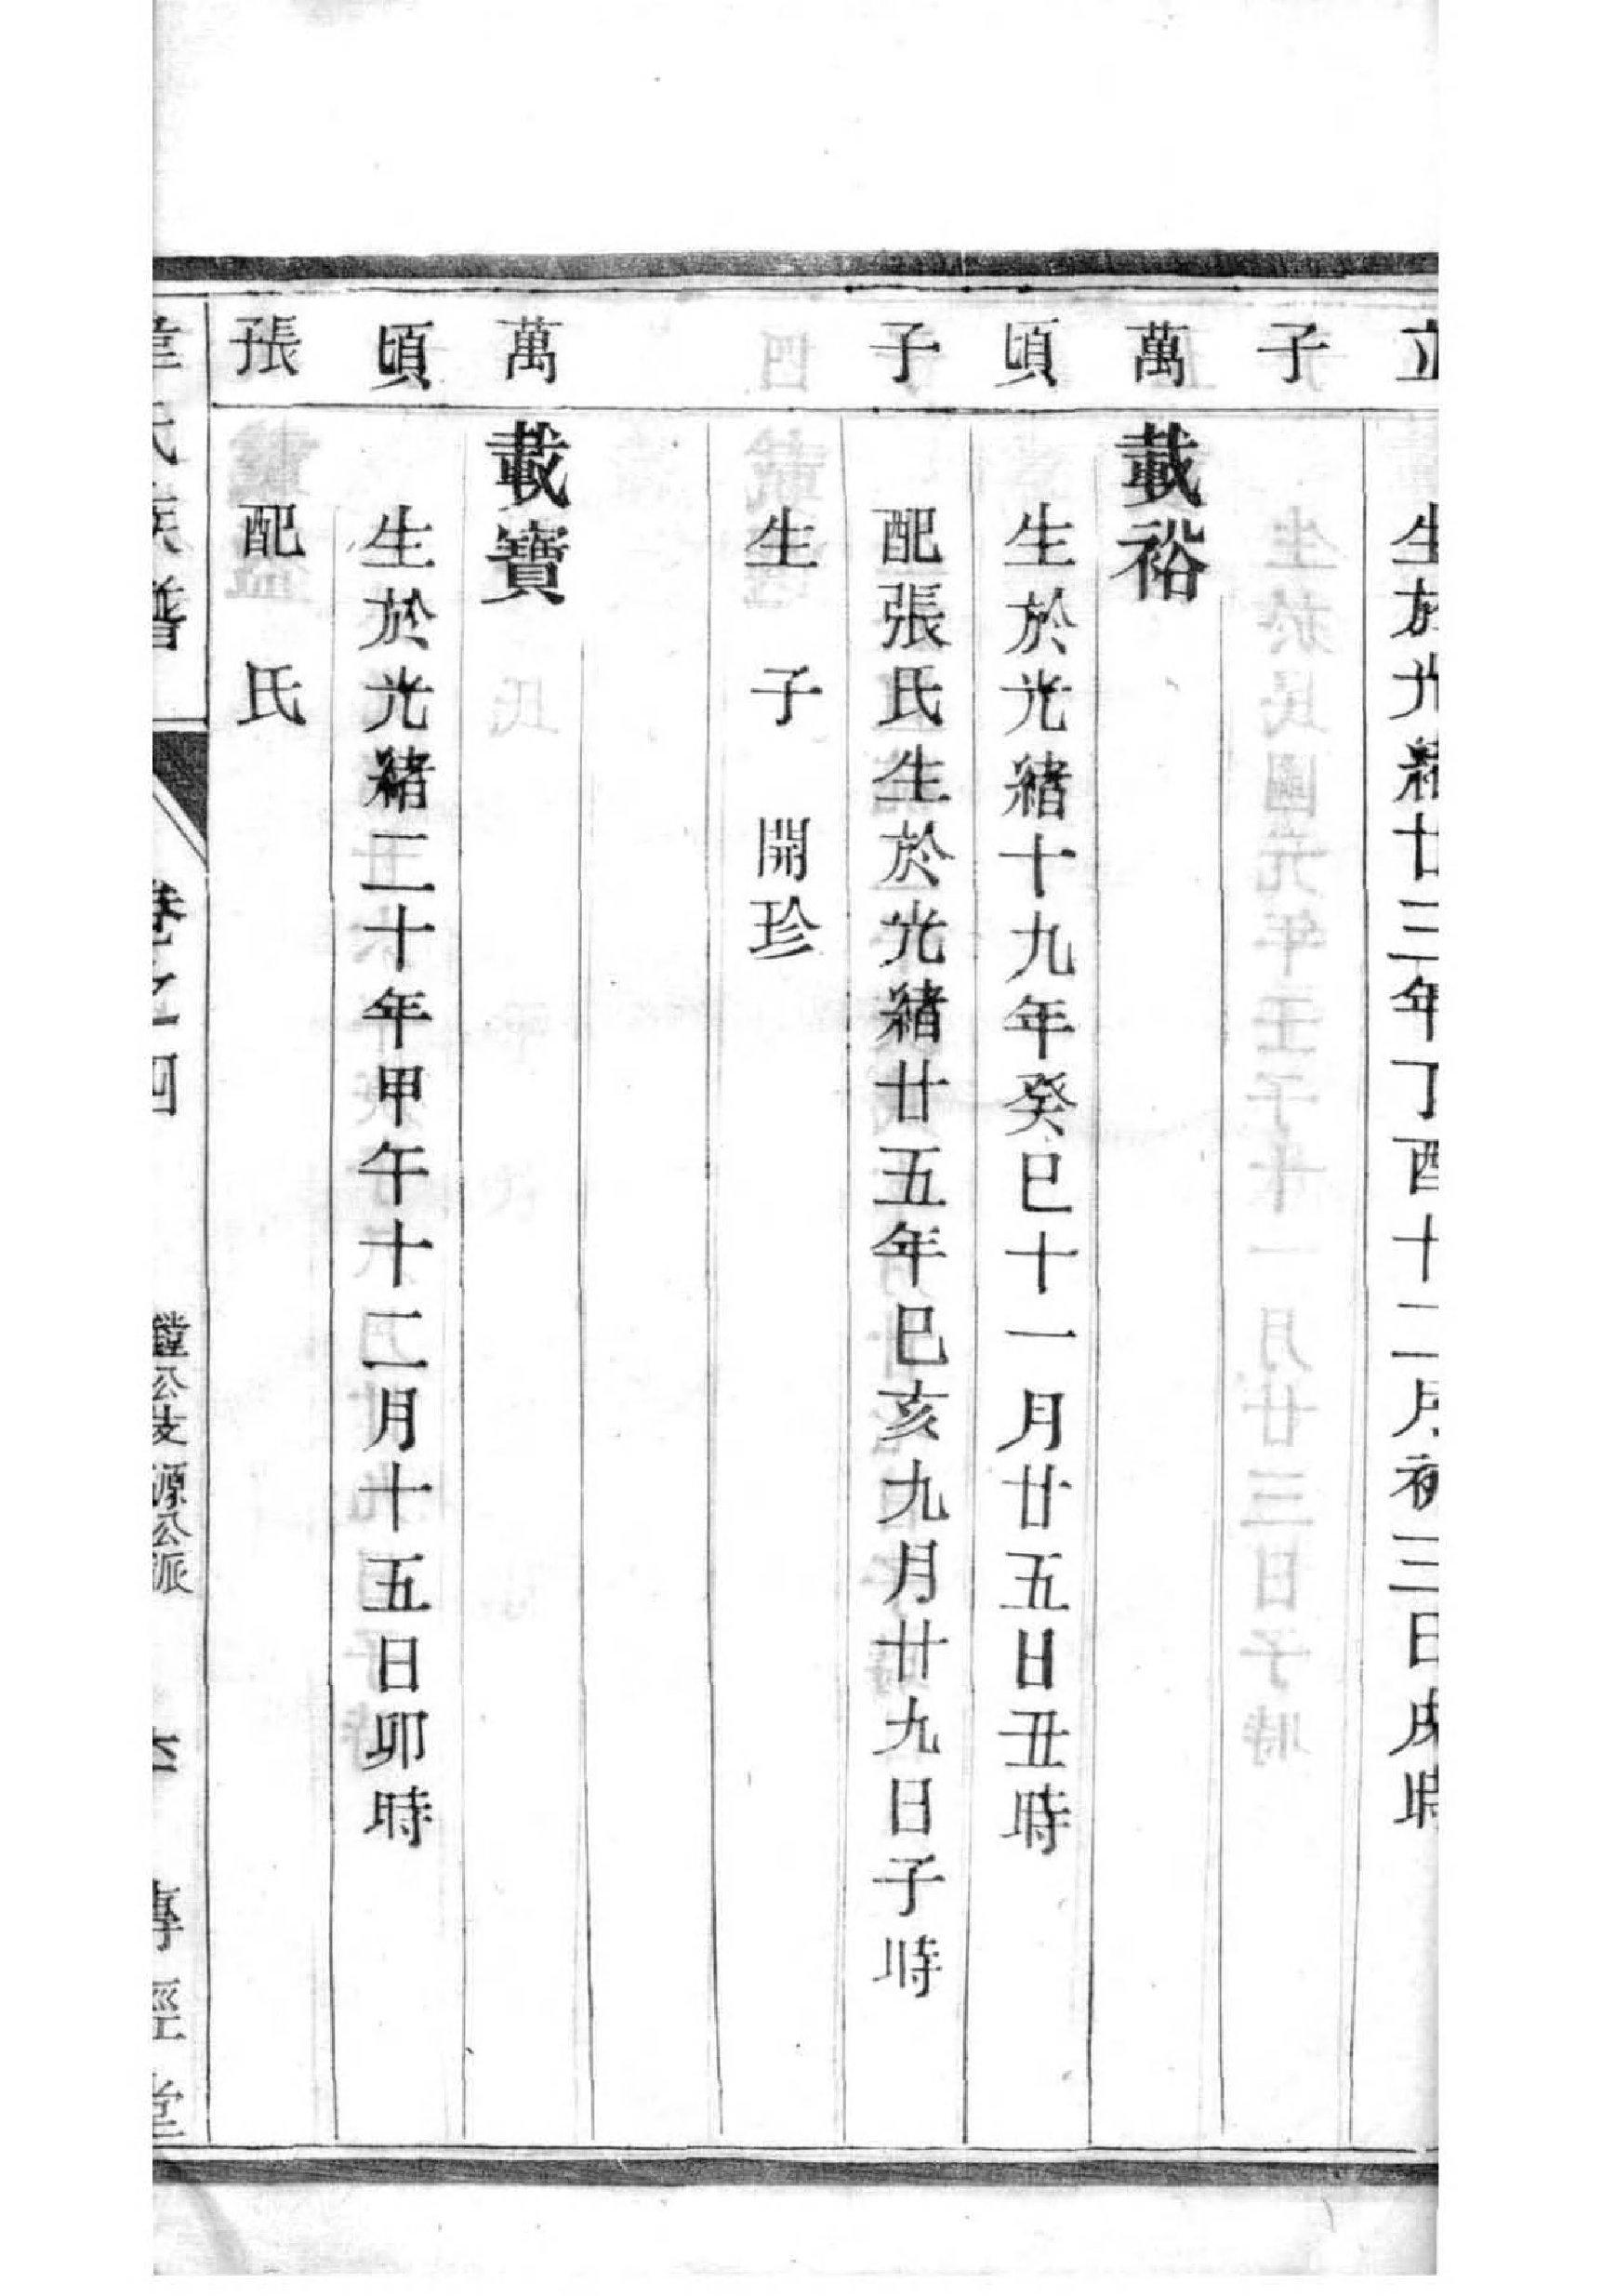 立
生於光緒廿三年丁酉十二月初三日戌時
子
萬
載裕
頃
生於光緒十九年癸巳十一月廿五日丑時
子
配張氏生於光緒廿五年巳亥九月廿九日子時
生 子 開珍
萬
載寶
頃
生於光緒二十年甲午十二月十五日卯時
張
配 氏
氏族譜
卷之四
公支源公派
傳經堂